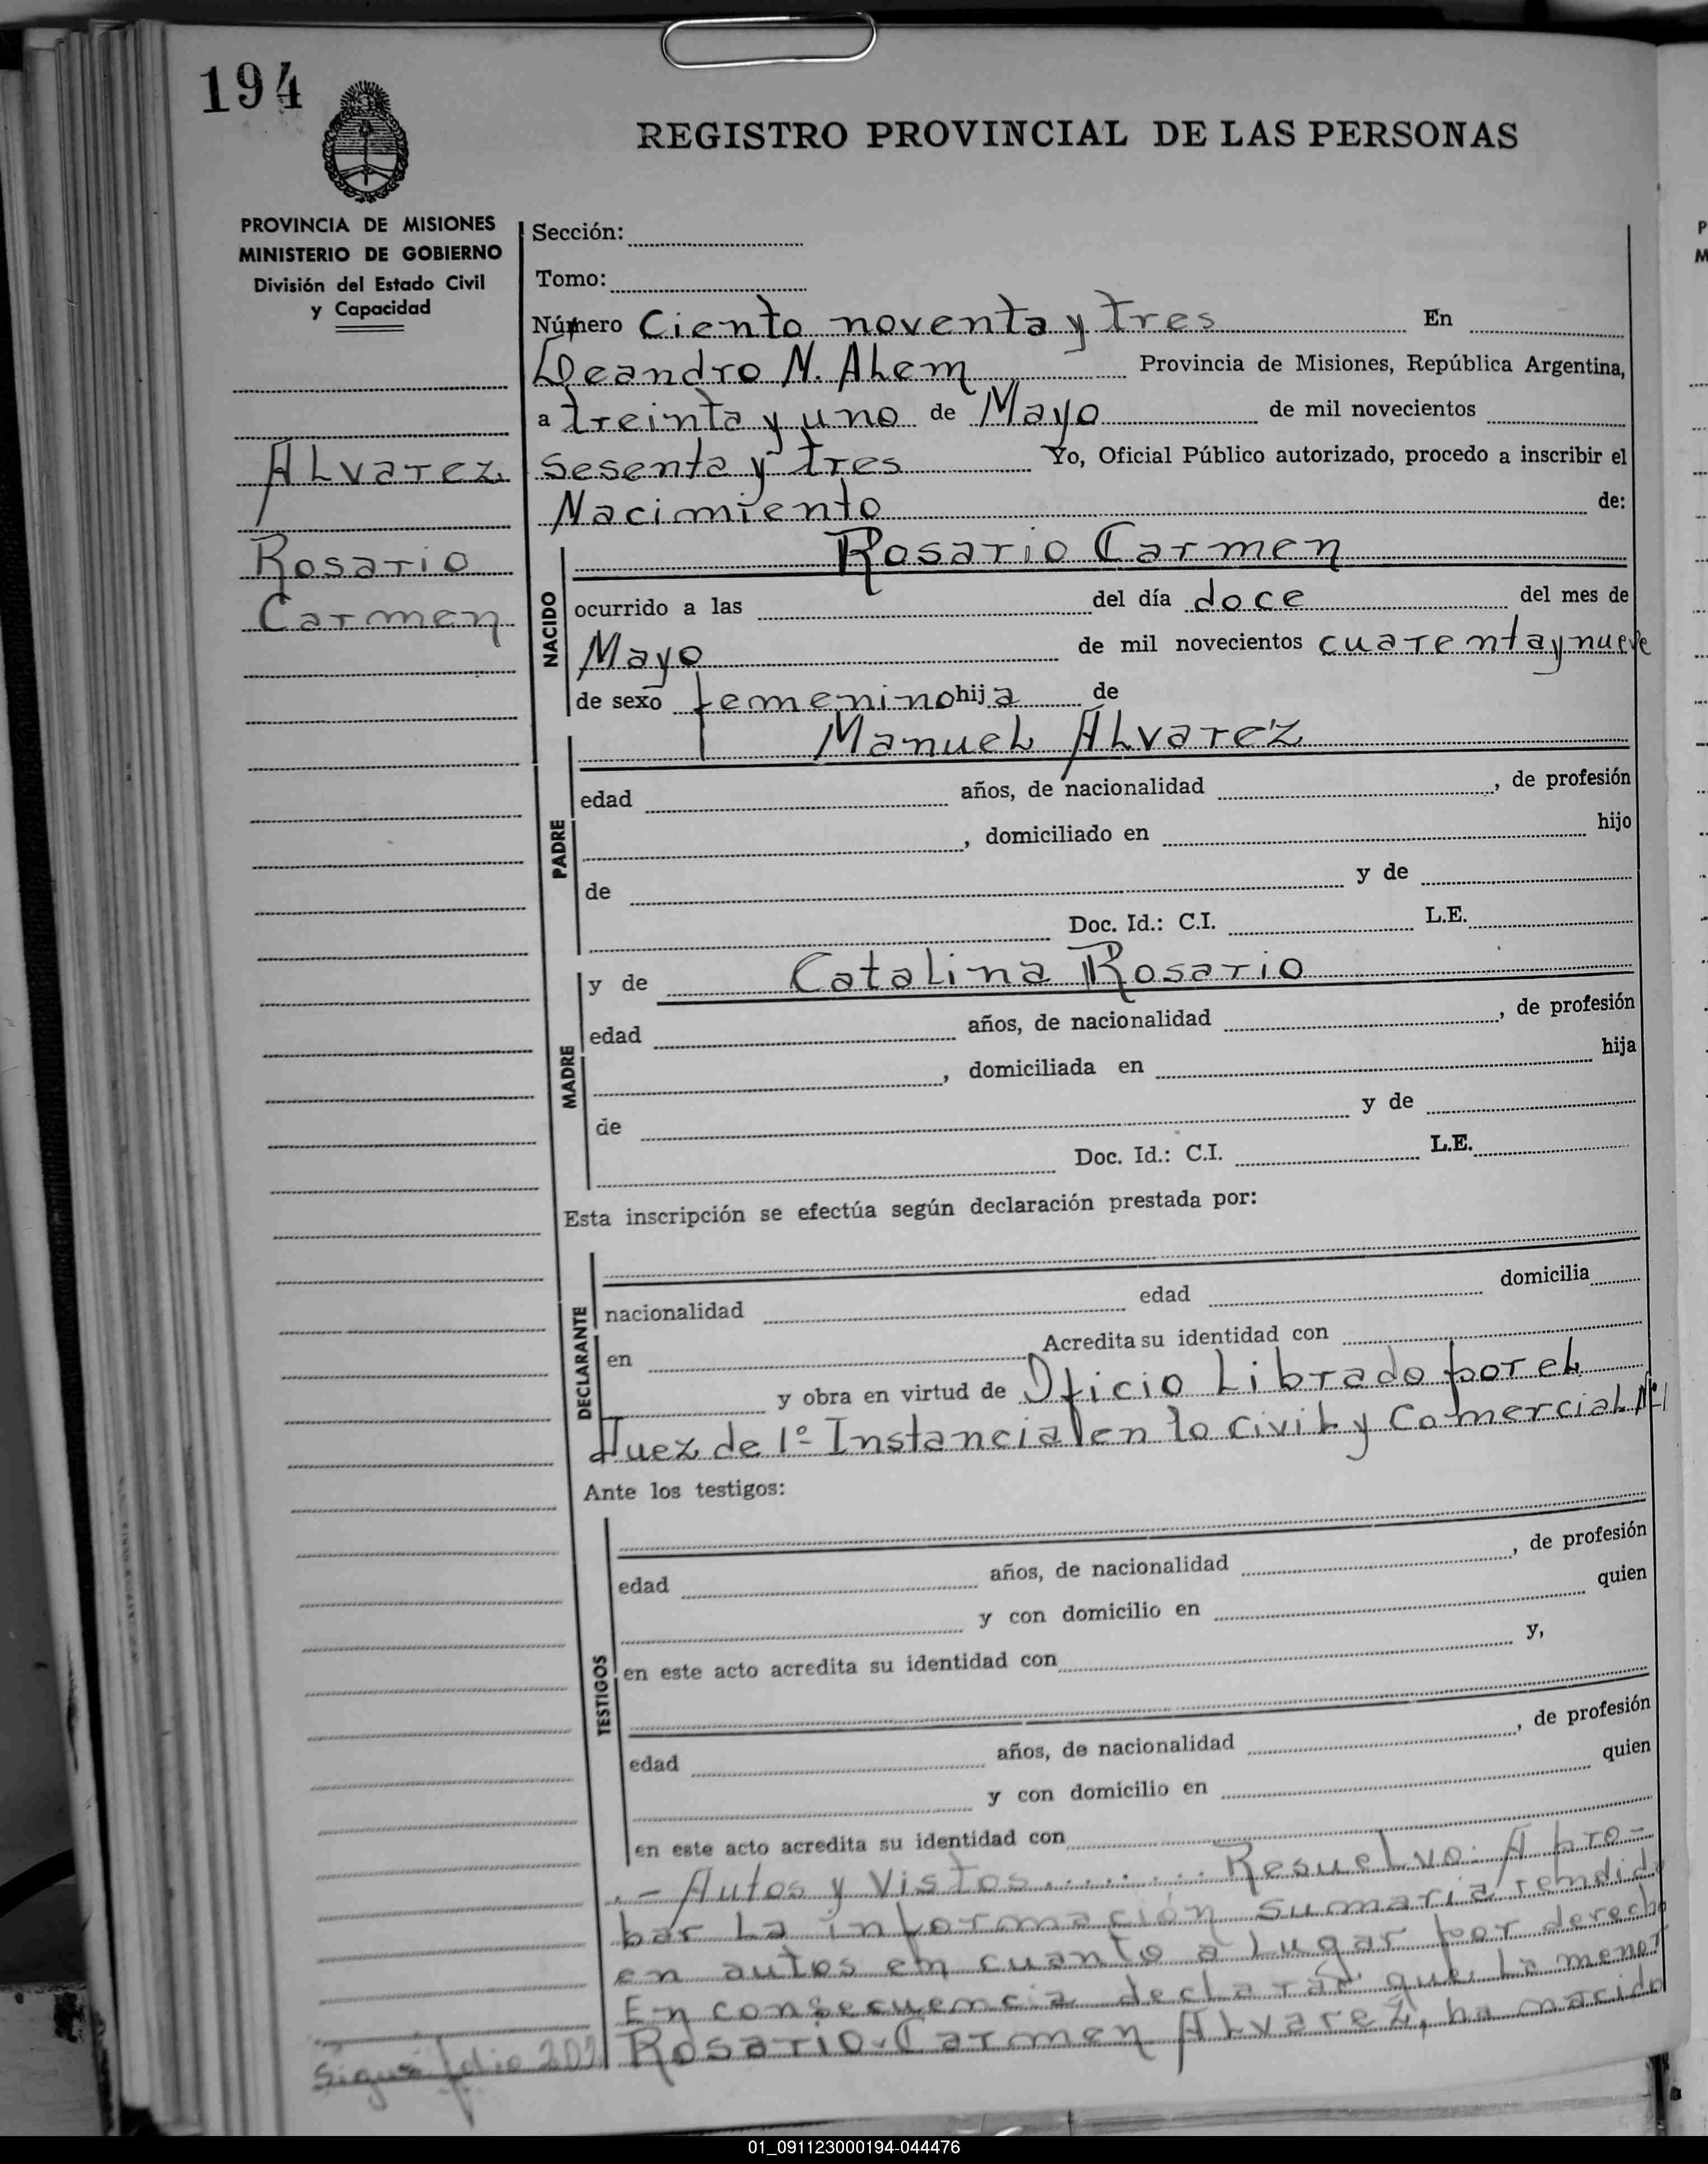 194
REGISTRO PROVINCIAL DE LAS PERSONAS
PROVINCIA DE MISIONES
MINISTERIO DE GOBIERNO
División del Estado Civil
y Capacidad
Alvarez
Rosario
Carmen
Sección:
Tomo:
Número Ciento noventa y tres En
Leandro N. Alem Provincia de Misiones, República Argentina,
a treinta y uno de Mayo de mil novecientos
sesenta y tres Yo, Oficial Público autorizado, procedo a inscribir el
Nacimiento de:
NACIDO
Rosario Carmen
ocurrido a las del día doce del mes de
Mayo de mil novecientos cuarenta y nueve
de sexo femenino hija de
PADRE
Manuel Álvarez
edad años, de nacionalidad , de profesión
, domiciliado en hijo
de y de
Doc. Id.: C.I. L.E.
MADRE
y de Catalina Rosario
edad años, de nacionalidad , de profesión
, domiciliada en hija
de y de
Doc. Id.: C.I. L.E.
Esta inscripción se efectúa según declaración prestada por:
DECLARANTE
nacionalidad edad domicilia
en Acredita su identidad con
y obra en virtud de Oficio Librado por el
Juez de 1º Instancia en lo civil y Comercial Nº 1
Ante los testigos:
TESTIGOS
edad años, de nacionalidad , de profesión
y con domicilio en quien
en este acto acredita su identidad con y,
edad años, de nacionalidad , de profesión
y con domicilio en quien
en este acto acredita su identidad con
.- Autos y Vistos.......... Resuelvo: Apro-
bar la información sumaria rendida
en autos en cuanto a lugar por derecho
En consecuencia declarar que la menor
Rosario Carmen Alvarez, ha nacido
Sigue folio
01_091123000194-044476